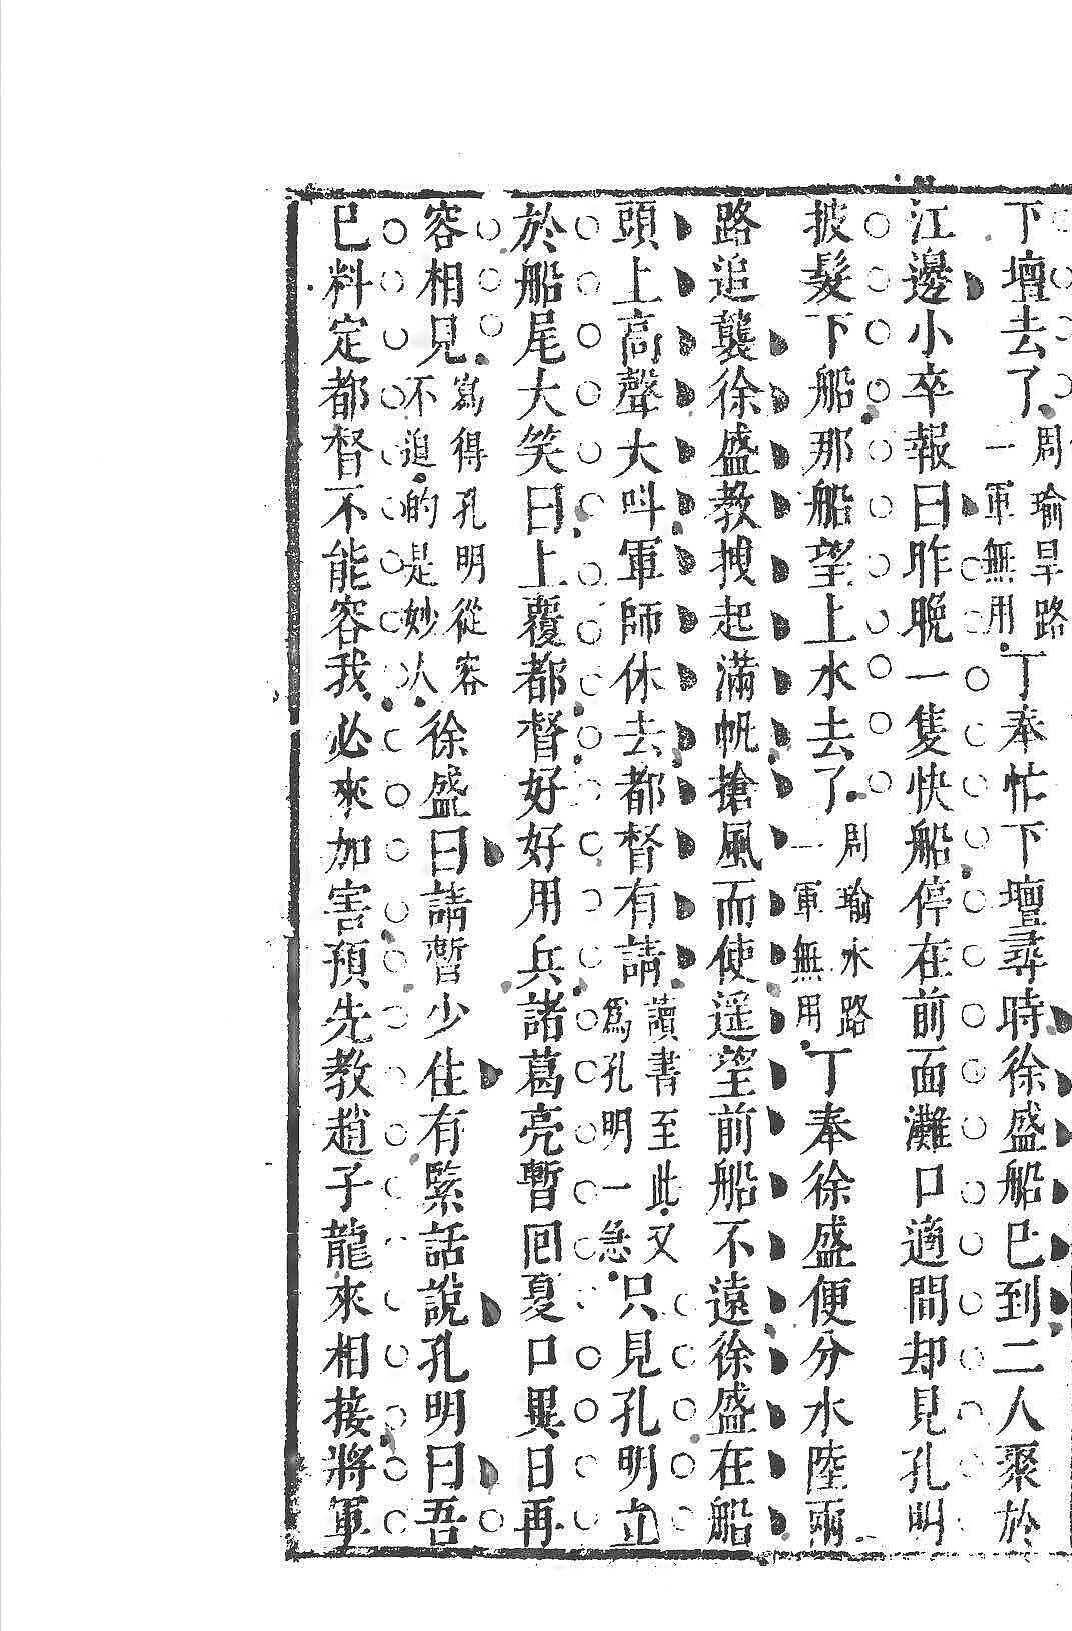 下壇去了周瑜旱路一軍無用丁奉忙下壇尋時徐盛船已到二人聚於
江邊小卒報曰昨晚一隻快船停在前面灘口適間却見孔明
披髮下船那船望上水去了周瑜水路一軍無用丁奉徐盛便分水陸兩
路追襲徐盛教拽起滿帆搶風而使遥望前船不遠徐盛在船
頭上高聲大呌軍師休去都督有請讀書至此又爲孔明一急只見孔明立
於船尾大笑曰上覆都督好好用兵諸葛亮暫囘夏口異日再
容相見寫得孔明從容不迫的是妙人徐盛曰請暫少住有緊話說孔明曰吾
已料定都督不能容我必來加害預先教趙子龍來相接將軍